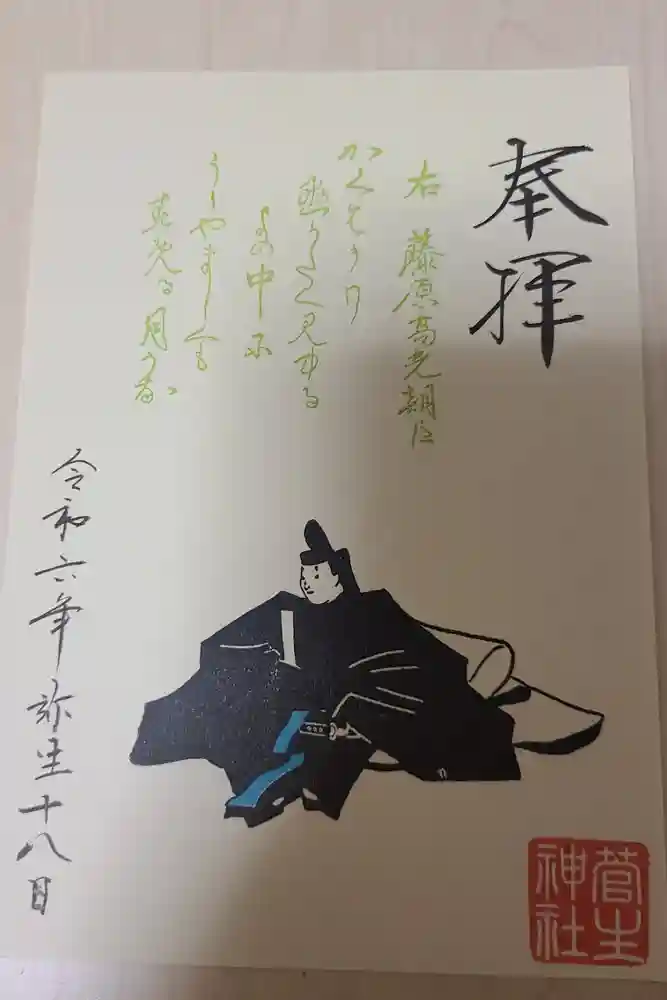 奉拝
右 藤原高光朝臣
かくはかり
へかたく見ゆる
よの中に
うらやましくも
すめる月かな
令和六年弥生十八日
菅生
神社